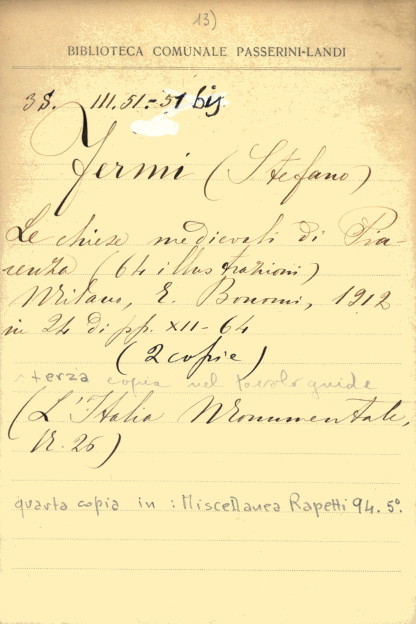 13)
BIBLIOTECA COMUNALE PASSERINI-LANDI
3S. III.51.-51 bis
Fermi (Stefano)
Le chiese medievali di Pia-
cenza (64 illustrazioni)
Milano, E. Bonomi, 1912
in 24 di pp. XII-64
(2 copie)
terza copia nel tavolo guide
(L'Italia Monumentale,
N. 26)
quarta copia in : Miscellanea Rapetti 94. 5°.